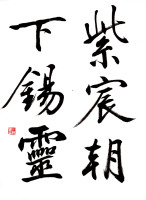 紫宸朝
下錫靈